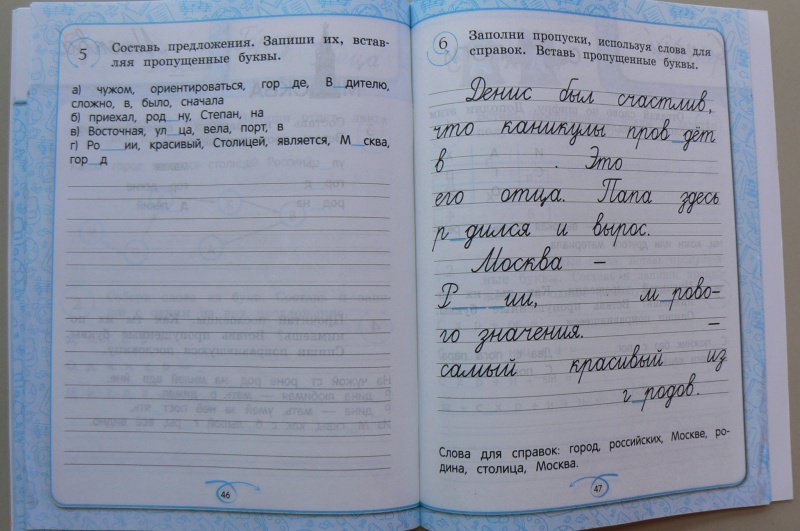 5 Составь предложения. Запиши их, встав-
ляя пропущенные буквы.
а) чужом, ориентироваться, гор_де, В_дителю,
сложно, в, было, сначала
б) приехал, род_ну, Степан, на
в) Восточная, ул_ца, вела, порт, в
г) Ро__ии, красивый, Столицей, является, М_сква,
гор_д
46
6 Заполни пропуски, используя слова для
справок. Вставь пропущенные буквы.
Денис был счастлив,
что каникулы пров_дёт
в . Это
его отца. Папа здесь
р_дился и вырос.
Москва –
Р ии, м_рово-
го значения. –
самый красивый из
г_родов.
Слова для справок: город, российских, Москве, ро-
дина, столица, Москва.
47